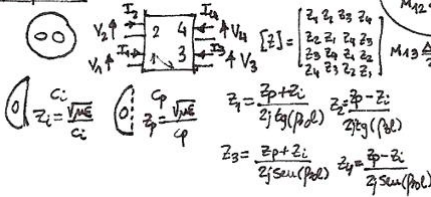 I2 I4
V2 2 4 V4
I1 I3
V1 1 3 V3
[Z] = [Z1 Z2 Z3 Z4
Z2 Z1 Z4 Z3
Z3 Z4 Z1 Z2
Z4 Z3 Z2 Z1]
M12
M13 ≜
Ci
Zi = √με / Ci
Cp
Zp = √με / Cp
Z1 = Zp+Zi / 2j tg(β0l) Z2 = Zp-Zi / 2j tg(β0l)
Z3 = Zp+Zi / 2j sen(β0l) Z4 = Zp-Zi / 2j sen(β0l)